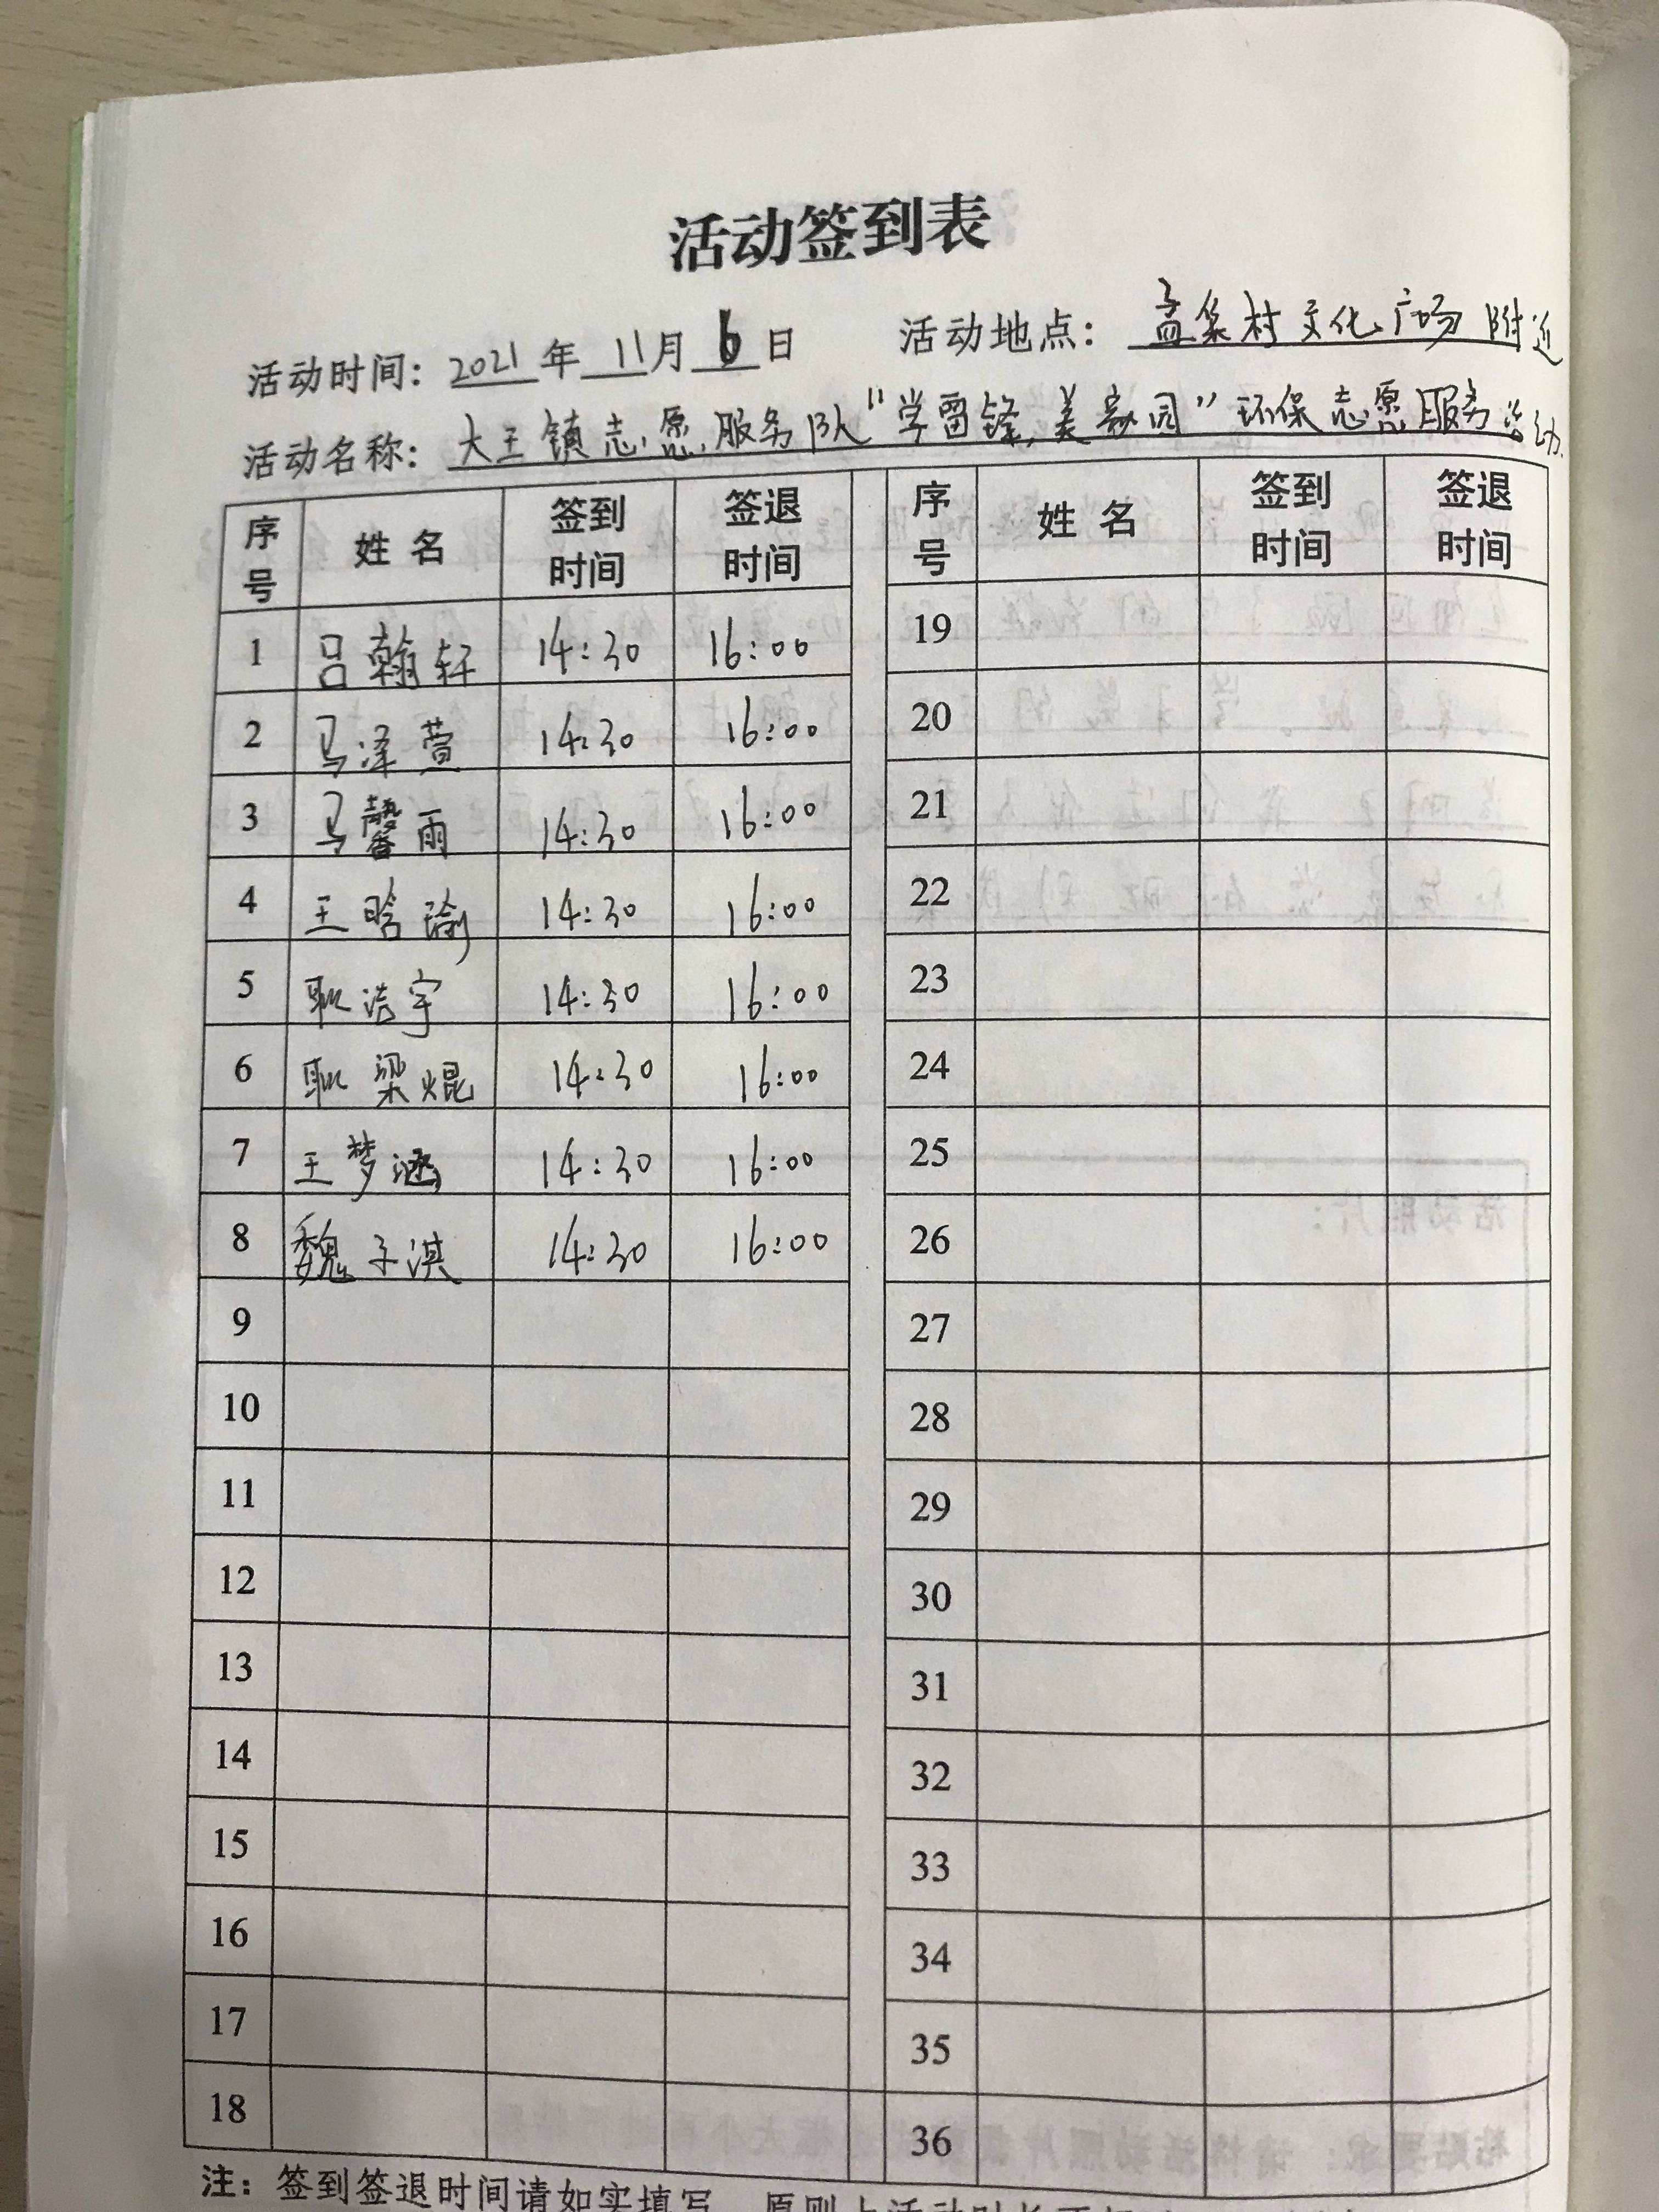 活动签到表
活动时间：2021年11月6日 活动地点：孟集村文化广场附近
活动名称：大王镇志愿服务队“学雷锋，美家园”环保志愿服务活动
序号 姓名 签到时间 签退时间 序号 姓名 签到时间 签退时间
1 吕翰轩 14:30 16:00 19
2 马泽萱 14:30 16:00 20
3 马馨雨 14:30 16:00 21
4 王晗瑜 14:30 16:00 22
5 耿洁宇 14:30 16:00 23
6 耿梁焜 14:30 16:00 24
7 王梦涵 14:30 16:00 25
8 魏子淇 14:30 16:00 26
9 27
10 28
11 29
12 30
13 31
14 32
15 33
16 34
17 35
18 36
注：签到签退时间请如实填写